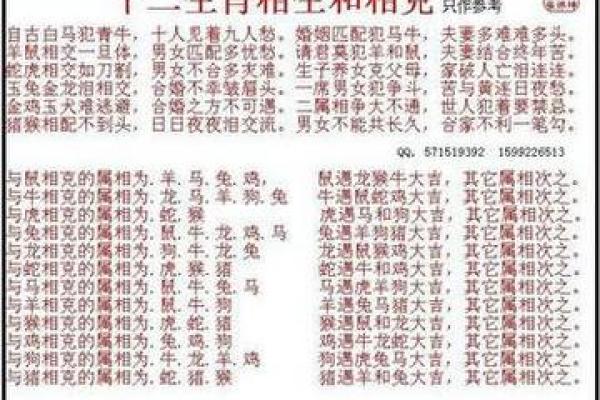 十二生肖相生和相克 只作参考
自古白马犯青牛，十人见着九人愁。婚姻匹配犯马牛，夫妻多难难多头。
羊鼠相交一旦休，男女匹配多忧愁。请君莫犯羊和鼠，夫妻结合终年苦。
蛇虎相交如刀割，男女不合多炙难。生子养女克父母，家破人亡泪连连。
玉兔金龙泪相交，合婚不幸皱眉头。一席男女犯争斗，苦与黄连日夜愁。
金鸡玉犬难逃避，合婚之方不可遇。二属相争大不通，世人犯着要禁忌。
猪猴相配不到头，日日夜夜泪交流。男女不能共长久，合家不利一笔勾。
QQ. 571519392 1599226513
与鼠相克的属相为.羊.马.兔.鸡, 鼠遇龙猴牛大吉, 其它属相次之。
与牛相克的属相为.龙.马.羊.狗.兔 牛遇鼠蛇鸡大吉, 其它属相次之。
与虎相克的属相为.蛇.猴 虎遇马和狗大吉, 其它属相次之。
与兔相克的属相为.鼠.牛.龙.鸡.马 兔遇羊狗猪大吉, 其它属相次之。
与龙相克的属相为.狗.牛.龙.兔 龙遇鼠猴鸡大吉, 其它属相次之。
与蛇相克的属相为.虎.猴.猪 蛇遇牛和鸡大吉, 其它属相次之。
与马相克的属相为.鼠.牛.兔.马 马遇虎羊狗大吉, 其它属相次之。
与羊相克的属相为.鼠.牛.狗 羊遇兔马猪大吉, 其它属相次之。
与猴相克的属相为.虎.蛇.猪 猴遇鼠和龙大吉, 其它属相次之。
与鸡相克的属相为.鸡.兔.狗 鸡遇牛龙蛇大吉, 其它属相次之。
与狗相克的属相为.牛.龙.羊.鸡 狗遇虎兔马大吉, 其它属相次之。
与猪相克的属相为.猪.蛇.猴 猪遇羊和兔大吉, 其它属相次之。